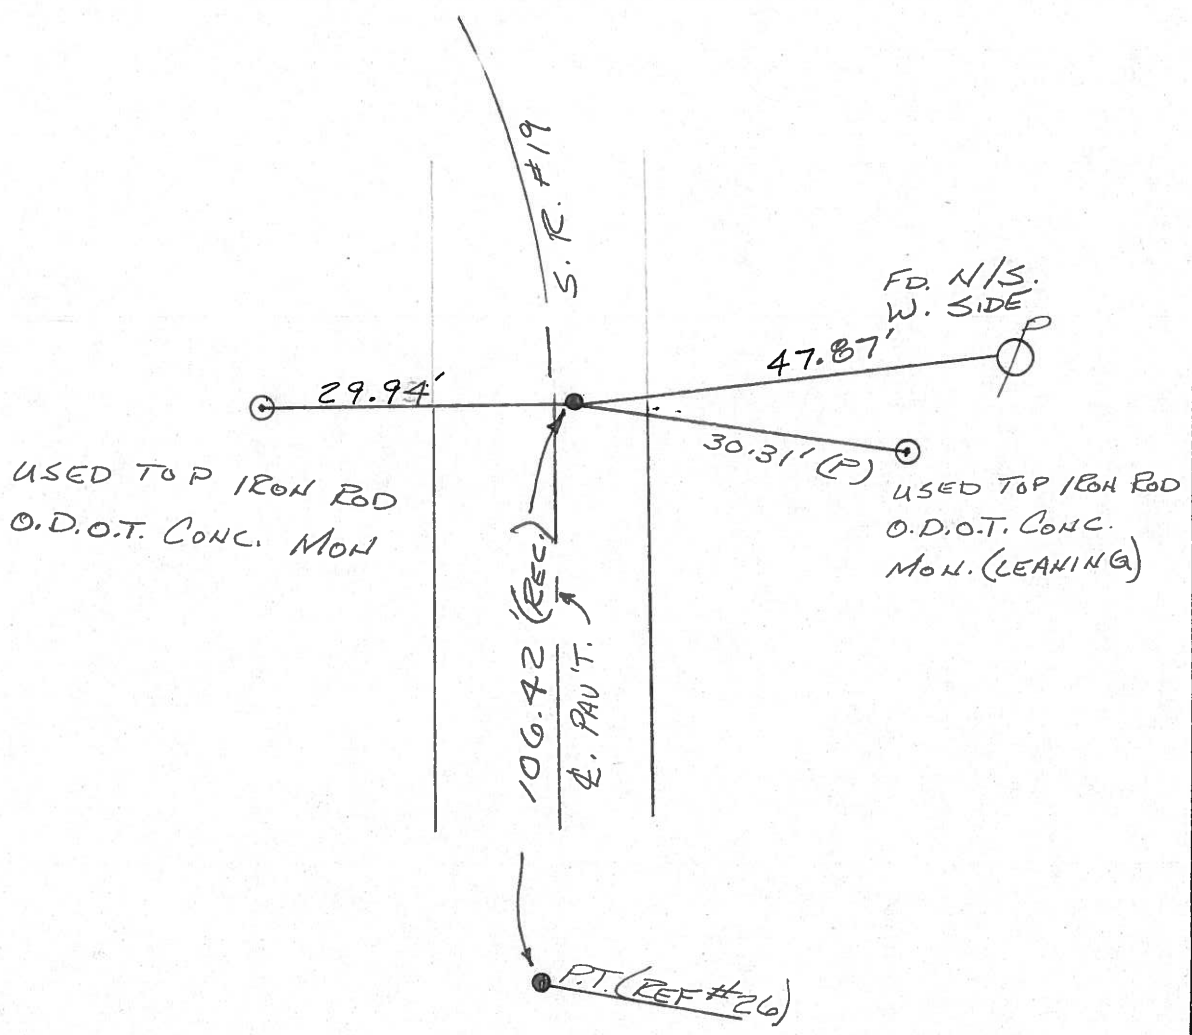 S. R. #19
FD. N/S.
W. SIDE
P
47.87'
29.94'
30.31' (P)
USED TOP IRON ROD
O.D.O.T. CONC. MON
USED TOP IRON ROD
O.D.O.T. CONC.
MON. (LEANING)
106.42' (REC.)
℄. PAV'T.
P.T. (REF #26)